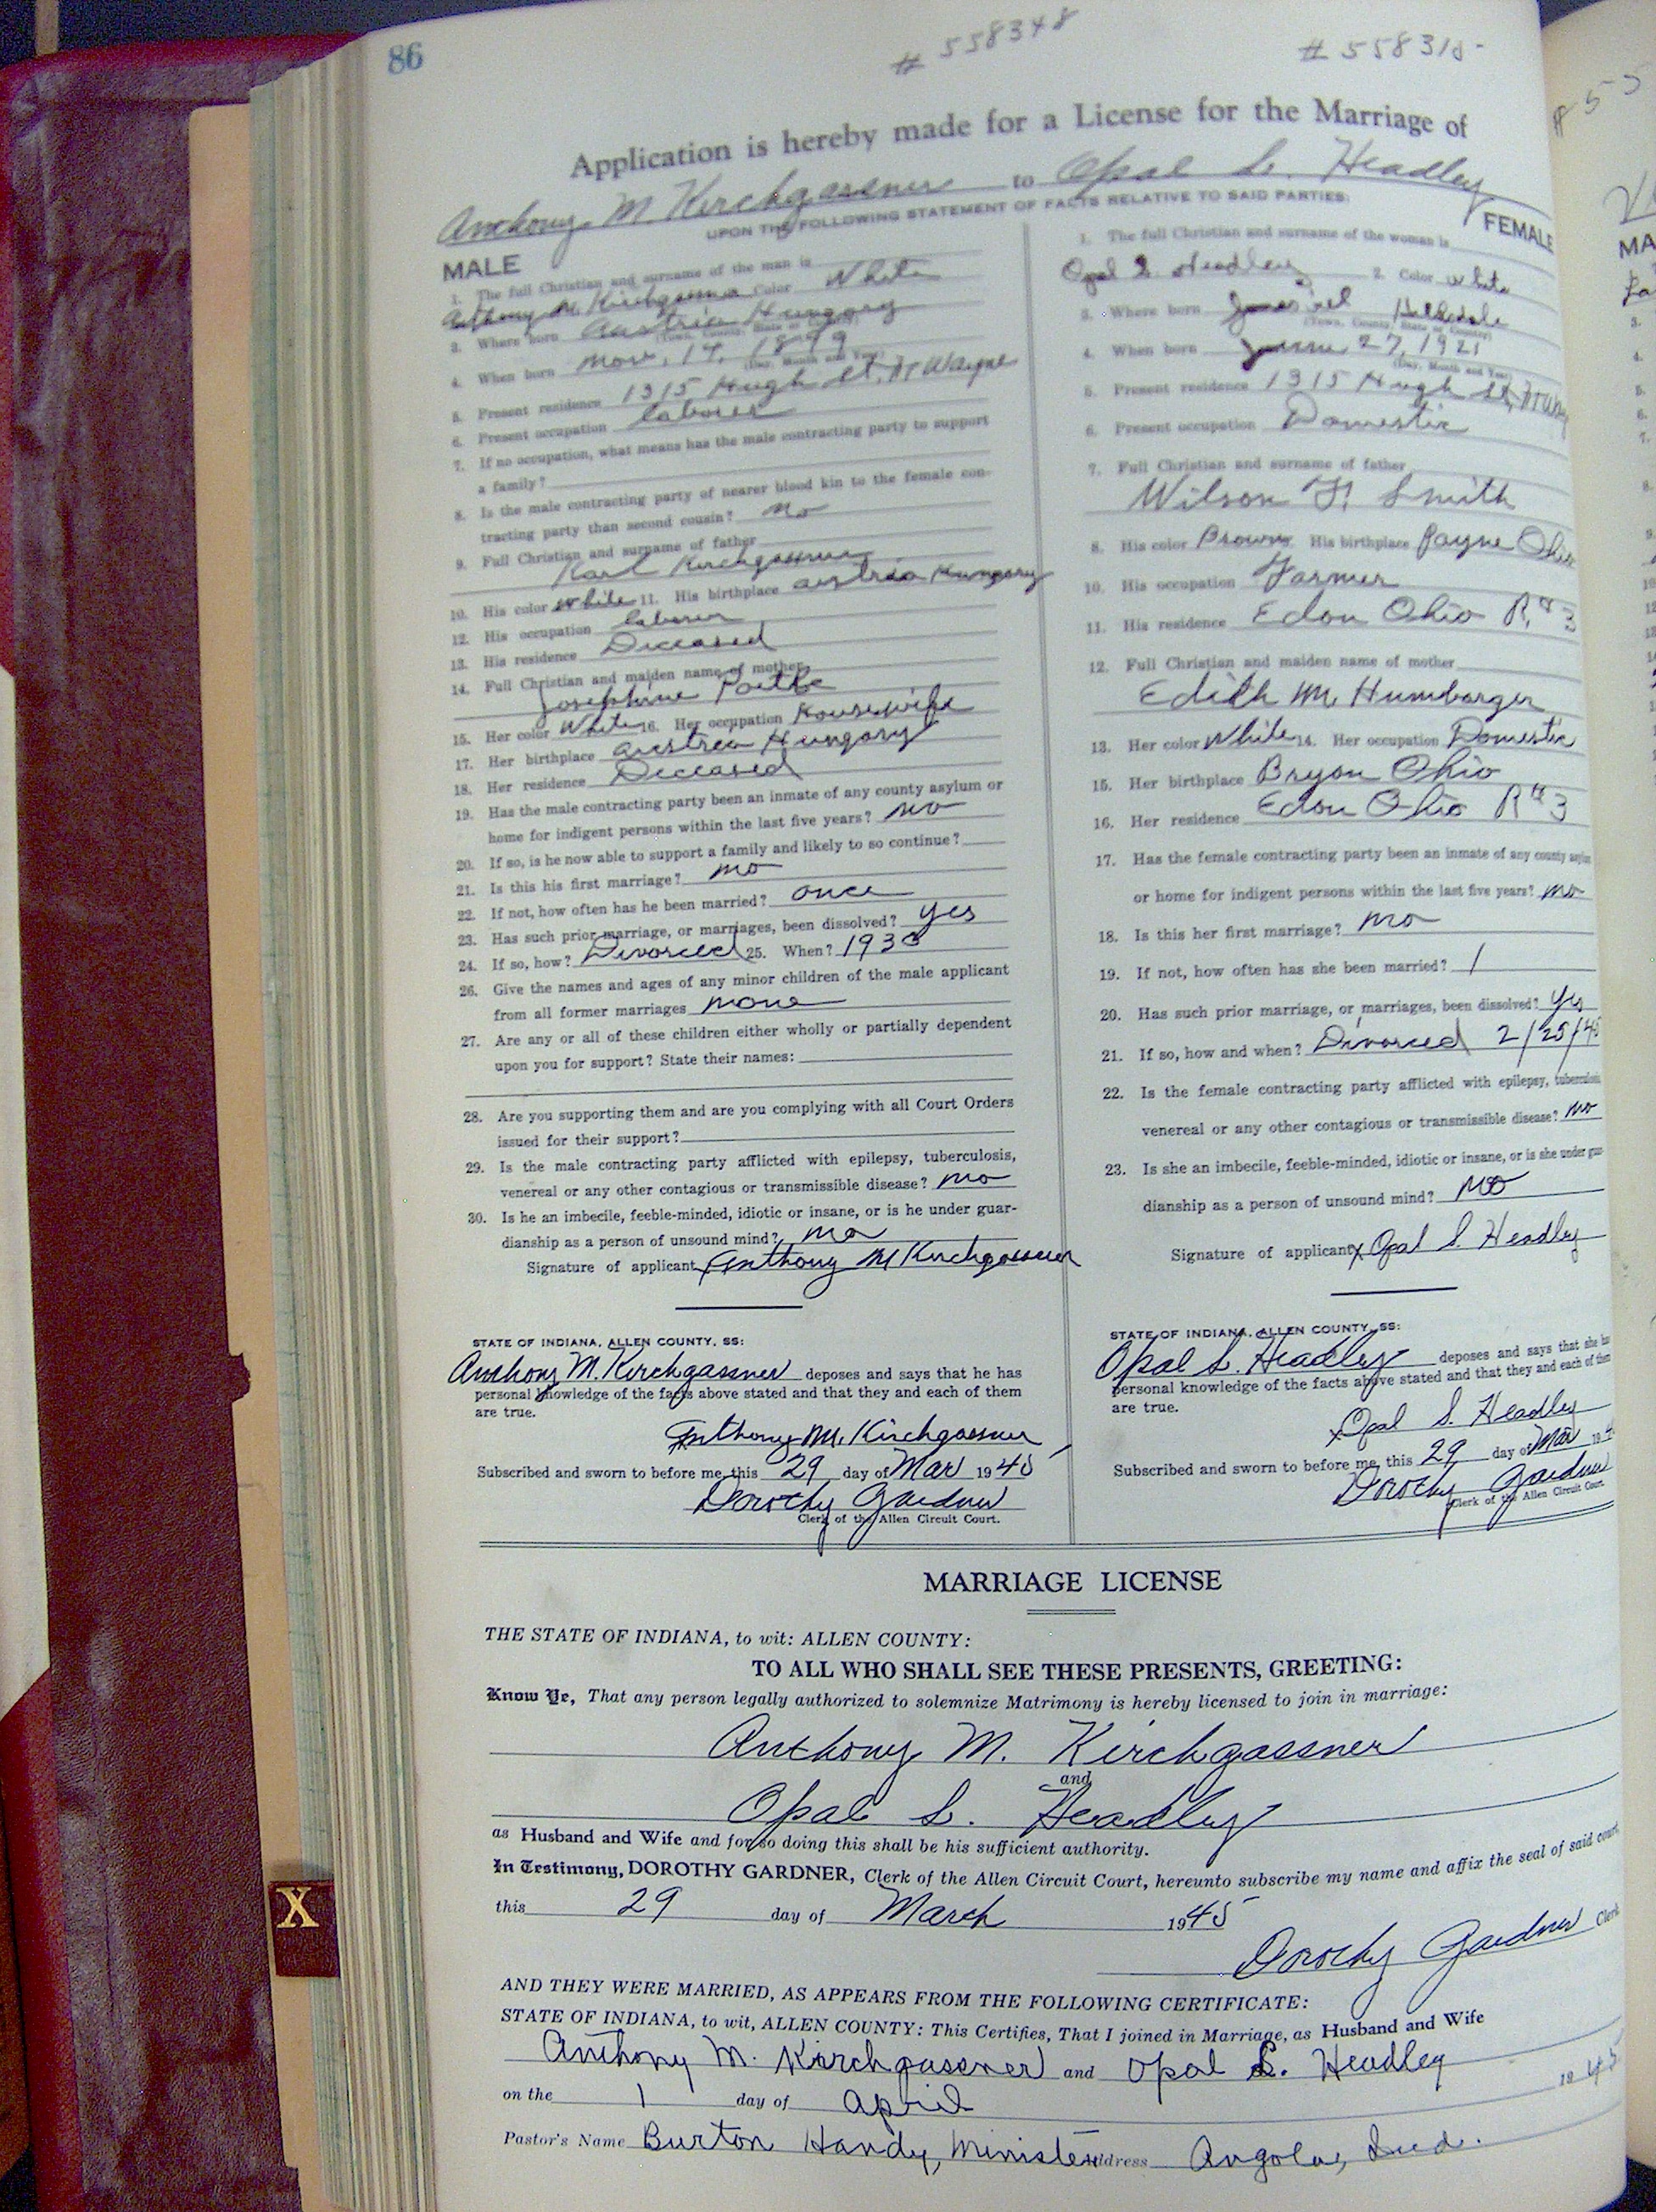 86
# 558348
# 558318-
Application is hereby made for a License for the Marriage of
Anthony M Kirchgassner to Opal L. Headley
UPON THE FOLLOWING STATEMENT OF FACTS RELATIVE TO SAID PARTIES:
MALE
1. The full Christian and surname of the man is
Anthony M. Kirchgassner Color White
3. Where born Austria Hungary
(Town, County, State or Country)
4. When born Nov. 14, 1899
(Day, Month and Year)
5. Present residence 1315 Hugh St. Ft Wayne
6. Present occupation laborer
7. If no occupation, what means has the male contracting party to support
a family?
8. Is the male contracting party of nearer blood kin to the female con-
tracting party than second cousin? no
9. Full Christian and surname of father
Karl Kirchgassner
10. His color white 11. His birthplace Austria Hungary
12. His occupation laborer
13. His residence Deceased
14. Full Christian and maiden name of mother
Josephine
15. Her color White 16. Her occupation Housewife
17. Her birthplace Austria Hungary
18. Her residence Deceased
19. Has the male contracting party been an inmate of any county asylum or
home for indigent persons within the last five years? no
20. If so, is he now able to support a family and likely to so continue?
21. Is this his first marriage? no
22. If not, how often has he been married? once
23. Has such prior marriage, or marriages, been dissolved? yes
24. If so, how? Divorced 25. When? 1938
26. Give the names and ages of any minor children of the male applicant
from all former marriages none
27. Are any or all of these children either wholly or partially dependent
upon you for support? State their names:
28. Are you supporting them and are you complying with all Court Orders
issued for their support?
29. Is the male contracting party afflicted with epilepsy, tuberculosis,
venereal or any other contagious or transmissible disease? no
30. Is he an imbecile, feeble-minded, idiotic or insane, or is he under guar-
dianship as a person of unsound mind? no
Signature of applicant x Anthony M Kirchgassner
STATE OF INDIANA, ALLEN COUNTY, SS:
Anthony M. Kirchgassner deposes and says that he has
personal knowledge of the facts above stated and that they and each of them
are true.
Anthony M. Kirchgassner
Subscribed and sworn to before me, this 29 day of Mar 1945
Dorothy Gardner
Clerk of the Allen Circuit Court.
FEMALE
1. The full Christian and surname of the woman is
Opal L. Headley 2. Color white
3. Where born Hillsdale
(Town, County, State or Country)
4. When born June 27, 1921
(Day, Month and Year)
5. Present residence 1315 Hugh St,
6. Present occupation Domestic
7. Full Christian and surname of father
Wilson F. Smith
8. His color Brown His birthplace Payne Ohio
10. His occupation Farmer
11. His residence Edon Ohio R.#3
12. Full Christian and maiden name of mother
Edith M. Humbarger
13. Her color White 14. Her occupation Domestic
15. Her birthplace Bryan Ohio
16. Her residence Edon Ohio R#3
17. Has the female contracting party been an inmate of any county asylum
or home for indigent persons within the last five years? no
18. Is this her first marriage? no
19. If not, how often has she been married? 1
20. Has such prior marriage, or marriages, been dissolved? yes
21. If so, how and when? Divorced 2/25/45
22. Is the female contracting party afflicted with epilepsy, tuberculosis
venereal or any other contagious or transmissible disease? no
23. Is she an imbecile, feeble-minded, idiotic or insane, or is she under guar-
dianship as a person of unsound mind? no
Signature of applicant x Opal L. Headley
STATE OF INDIANA, ALLEN COUNTY, SS:
Opal L. Headley deposes and says that she has
personal knowledge of the facts above stated and that they and each of them
are true.
x Opal L. Headley
Subscribed and sworn to before me, this 29 day of Mar 194
Dorothy Gardner
Clerk of the Allen Circuit Court.
MARRIAGE LICENSE
THE STATE OF INDIANA, to wit: ALLEN COUNTY:
TO ALL WHO SHALL SEE THESE PRESENTS, GREETING:
Know Ye, That any person legally authorized to solemnize Matrimony is hereby licensed to join in marriage:
Anthony M. Kirchgassner
and
Opal L. Headley
as Husband and Wife and for so doing this shall be his sufficient authority.
In Testimony, DOROTHY GARDNER, Clerk of the Allen Circuit Court, hereunto subscribe my name and affix the seal of said court
this 29 day of March 1945
Dorothy Gardner Clerk
AND THEY WERE MARRIED, AS APPEARS FROM THE FOLLOWING CERTIFICATE:
STATE OF INDIANA, to wit, ALLEN COUNTY: This Certifies, That I joined in Marriage, as Husband and Wife
Anthony M. Kirchgassner and Opal L. Headley
on the 1 day of April 1945
Pastor's Name Burton Handy, Minister Address Angola, Ind.
X
# 55
MA